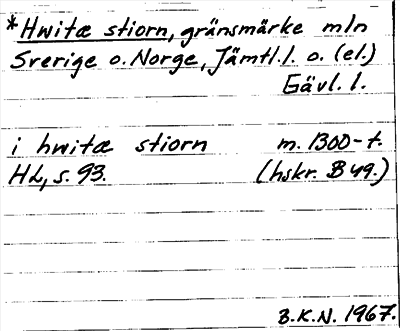 *Hwitæ stiorn, gränsmärke mln
Sverige o. Norge, Jämtl.l. o. (el.)
Gävl. l.
i hwitæ stiorn m. 1300-t.
HL, s. 93. (hskr. B 49.)
B.K.N. 1967.